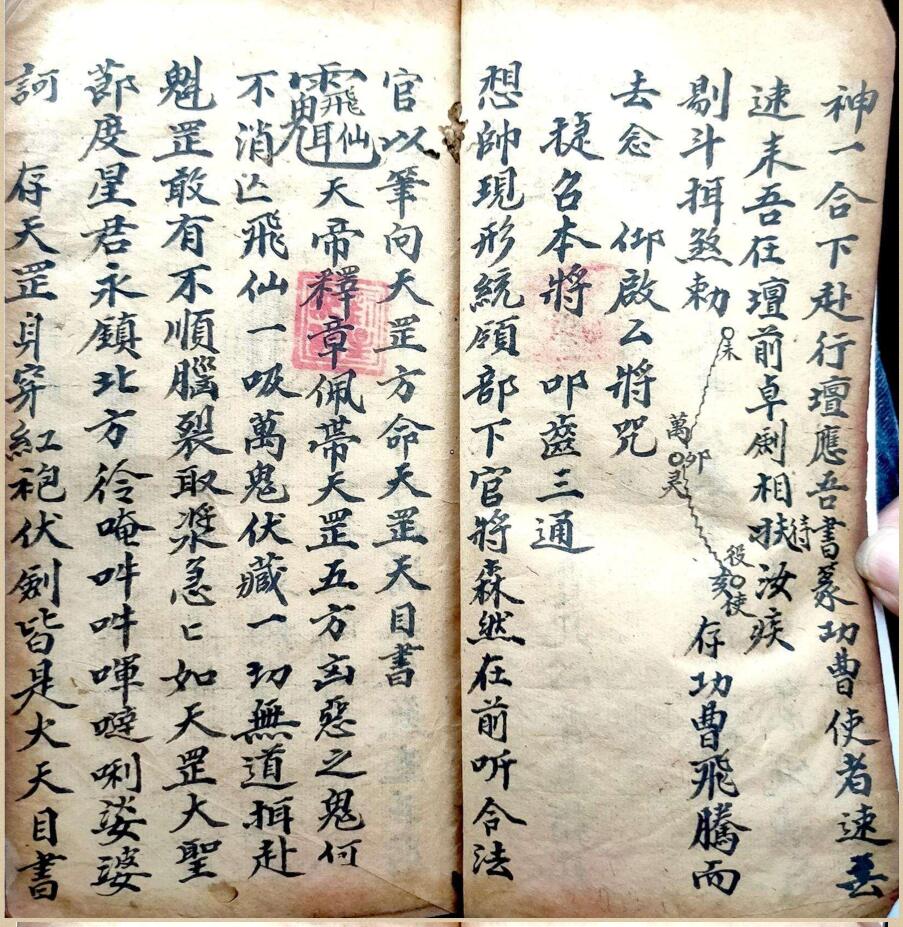 神一合下赴行壇應吾書篆功曹使者速去
速来吾在壇前卓劍相待汝疾
剔斗揖煞勅
来
萬卬灵
役亥使
存功曹飛騰而
去念 仰啟厶將咒
捷召本將 叩齒三通
想帥現形統領部下官將森然在前听合法
官以筆向天罡方命天罡天目書
飛仙 天帝釋章佩帶天罡五方凶惡之鬼何
不消亡飛仙一吸萬鬼伏藏一切無道揖赴
魁罡敢有不順腦裂取漿急匕如天罡大聖
節度星君永鎮北方彾唵吽吽唓噠唎娑婆
訶 存天罡身穿紅袍伏劍皆是火天目書